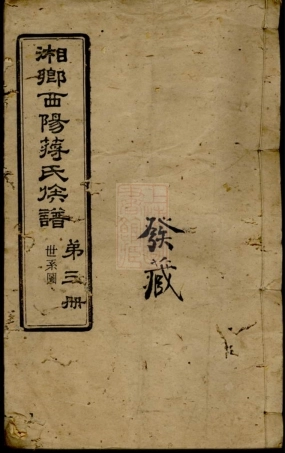 湘鄉西陽蔣氏族譜
第三册
世系圖
發藏